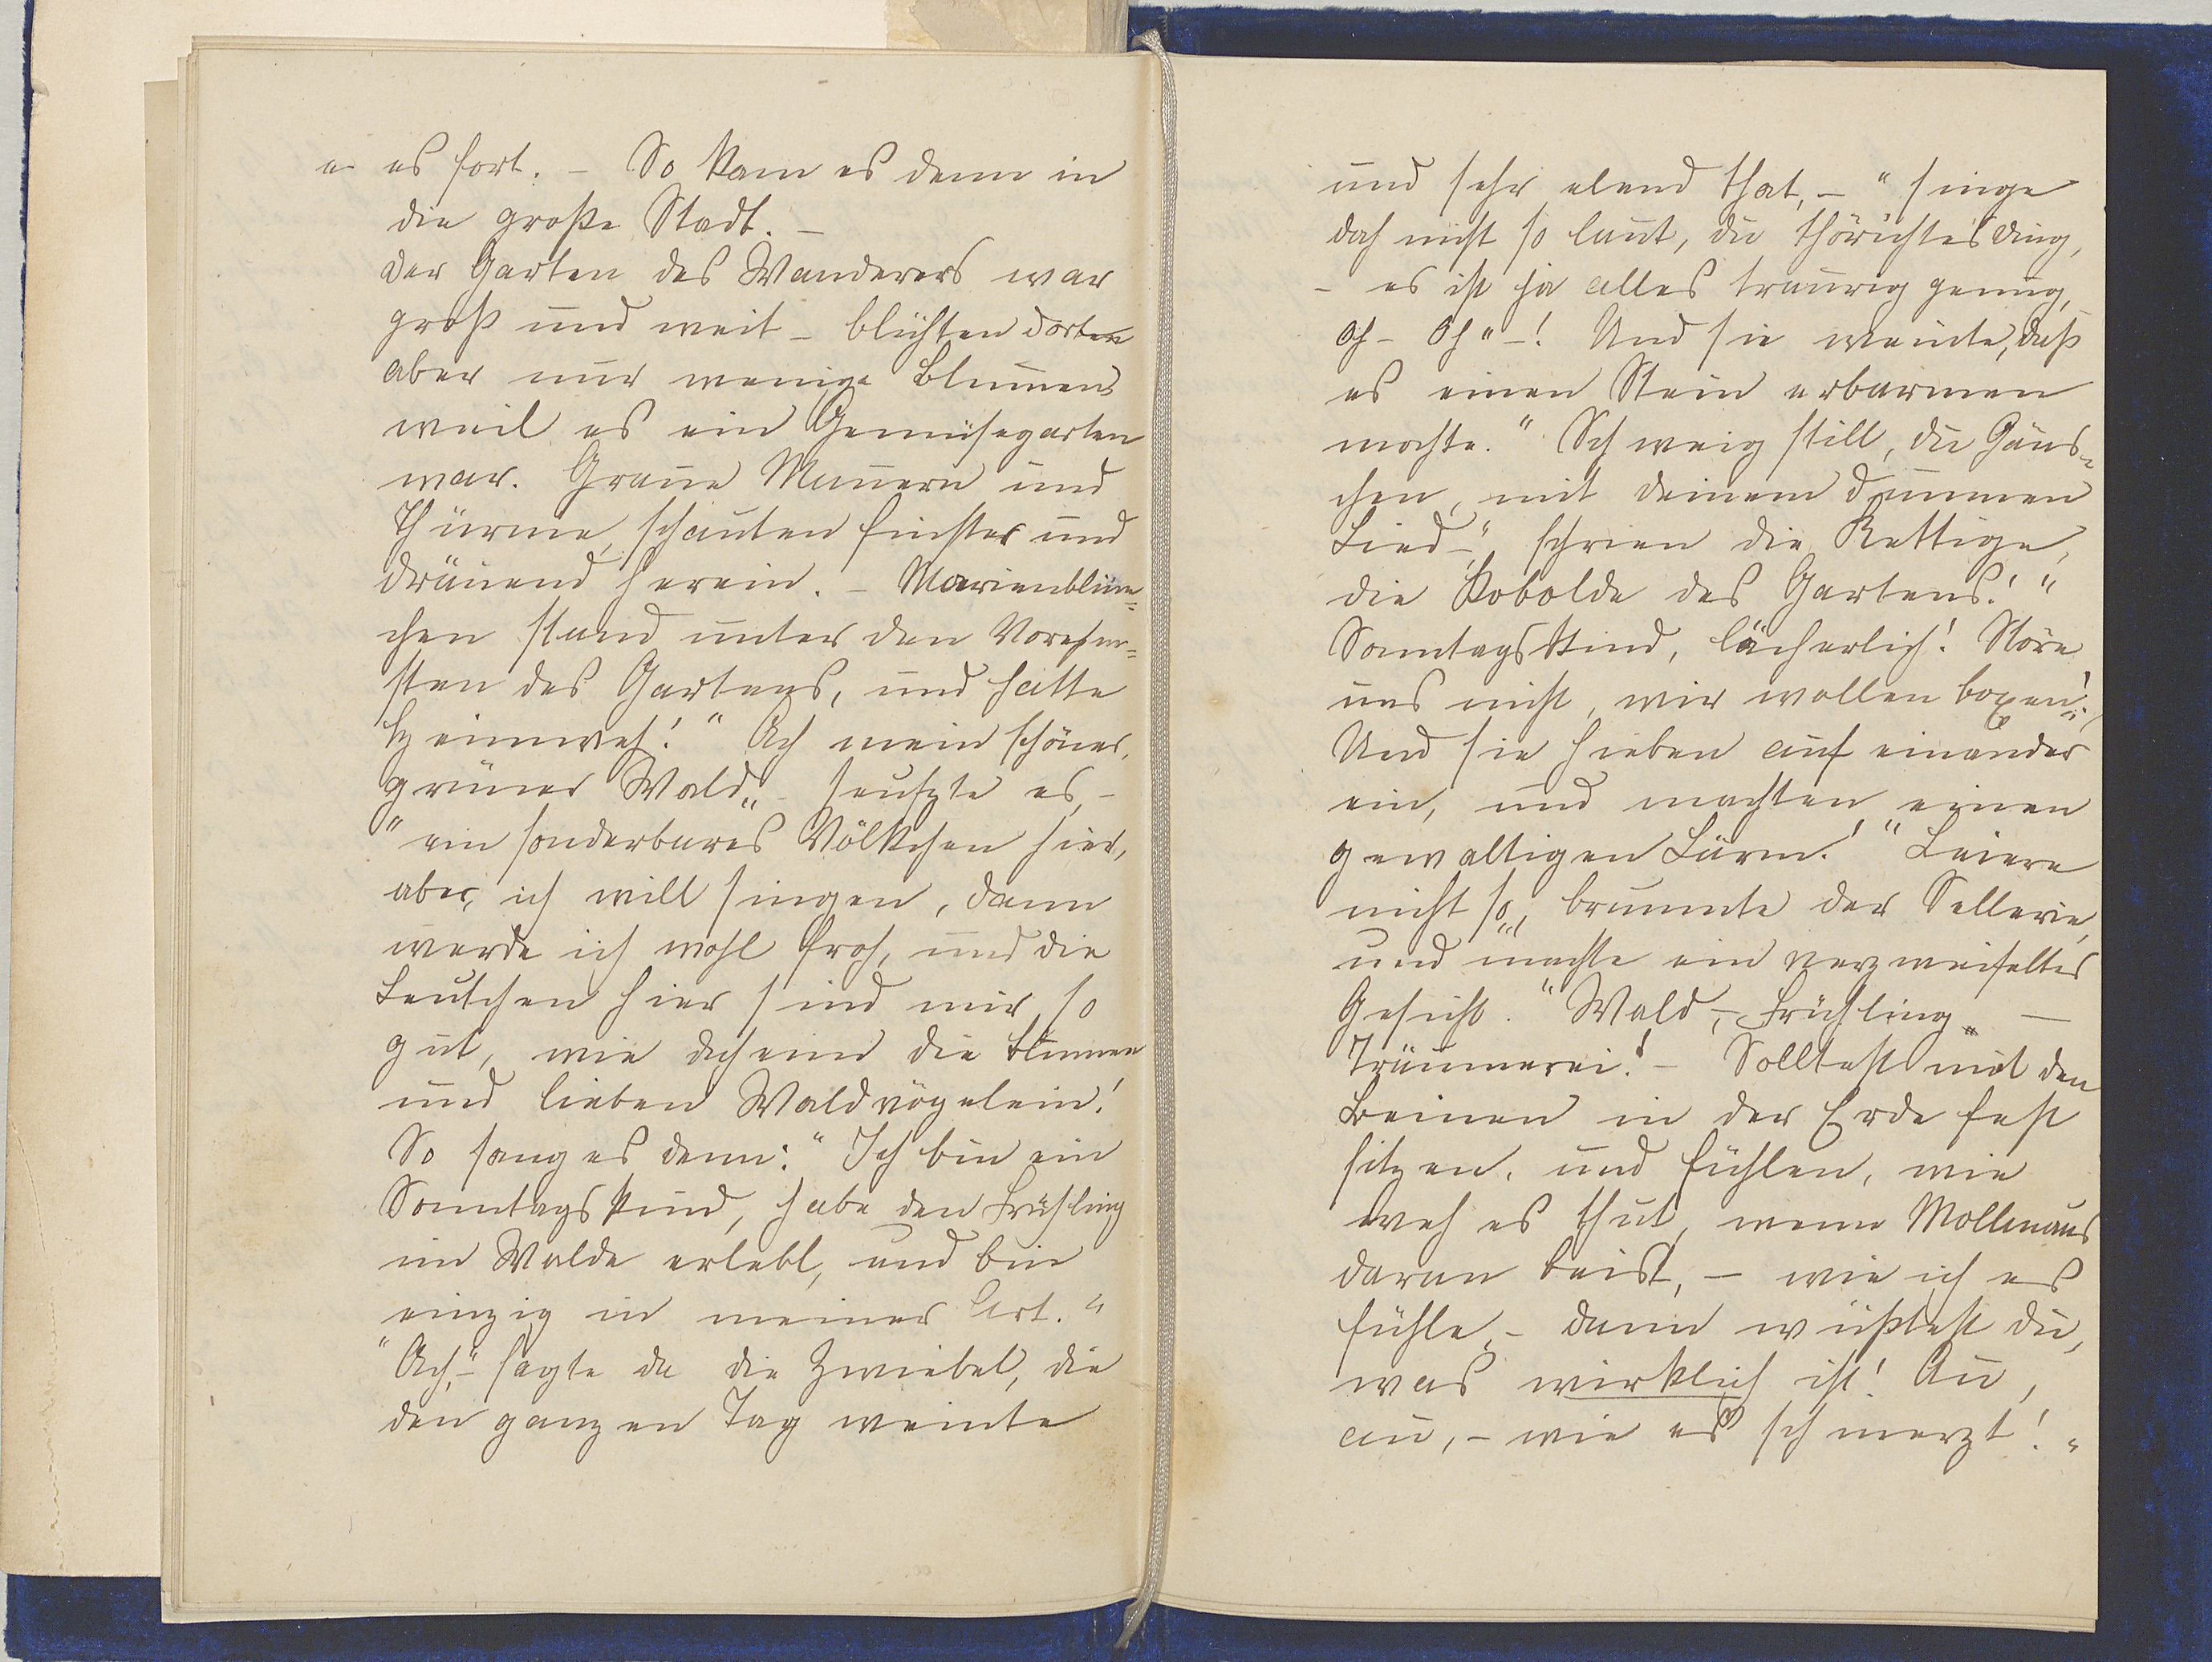 er es fort. – So kam es denn in
die große Stadt. –
Der Garten des Wanderers war
groß und weit – blühten dorten
aber nur wenige Blumen
weil es ein Gemüsegarten
war. Graue Mauern und
Thürme, schauten finster und
dräuend herein. – Marienblüm=
chen stand unter den Vorehm=
sten des Gartens, und hatte
Heimweh! " Ach mein schöner,
grüner Wald„ – seufzte es, –
" ein sonderbares Völkchen hier,
aber, ich will singen, dann
werde ich wohl froh, und die
Leutchen hier sind mir so
gut, wie daheim die Blumen
und lieben Waldvögelein!
So sang es denn: " Ich bin ein
Sonntagskind, habe den Frühling
im Walde erlebt, und bin
einzig in meiner Art. "
" Ach," – sagte da die Zwiebel, die
den ganzen Tag weinte
und sehr elend that, – " singe
doch nicht so laut, du thörichtes Ding,
– es ist ja alles traurig genug,
oh – oh " – ! Und sie weinte, daß
es einen Stein erbarmen
mochte. " Schweig still, du Gäns=
chen, mit deinem dummen
Lied –", schrien die Rettige,
die Kobolde des Gartens! "
Sonntagskind, lächerlich! Störe
uns nicht, wir wollen boxen!„
Und sie hieben auf einander
ein, und machten einen
gewaltigen Lärm! " Leiere
nicht so„, brummte der Sellerie,
und machte ein verzweifeltes
Gesicht. " Wald, – Frühling„ –
Träumerei! – Solltest mit den
Beinen in der Erde fest
sitzen, und fühlen, wie
weh es thut, wenn Mollmaus
daran beist, – wie ich es
fühle, – dann wüßtest du,
was wirklich ist! Au,
au, – wie es schmerzt! „